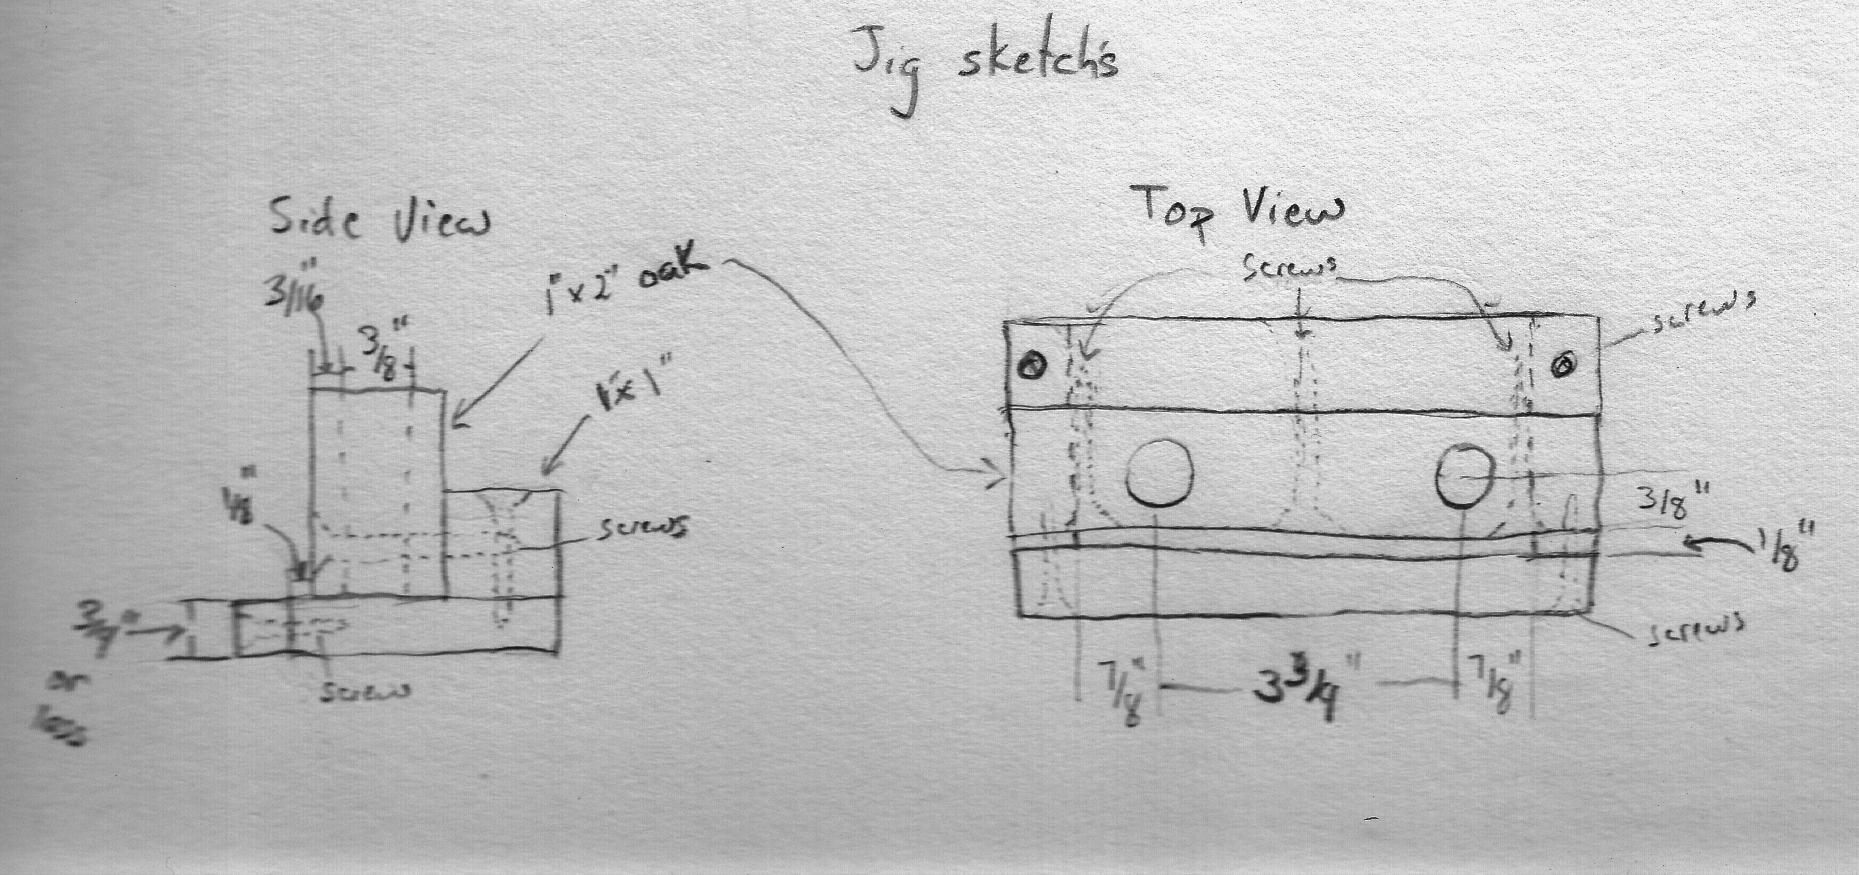 Jig sketch's
Side View
3/16"
3/8"
1"x2" oak
1"x1"
1/8"
screws
3/4"
or
less
screw
Top View
screws
screws
3/8"
1/8"
screws
7/8"
3 3/4"
7/8"